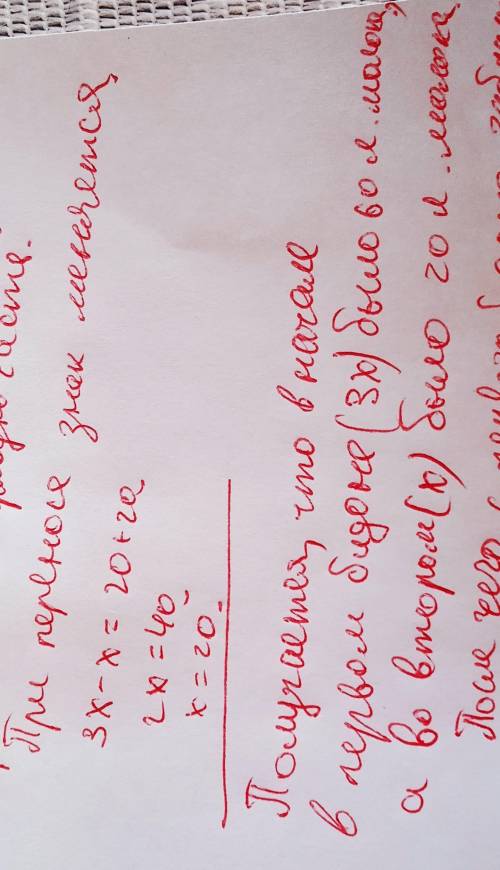 части.
При переносе знак меняется,
3х - х = 20 + 20
2х = 40,
х = 20.
Получается, что в начале
в первом бидоне (3х) было 60 л. молока,
а во втором (х) было 20 л. молока.
После чего